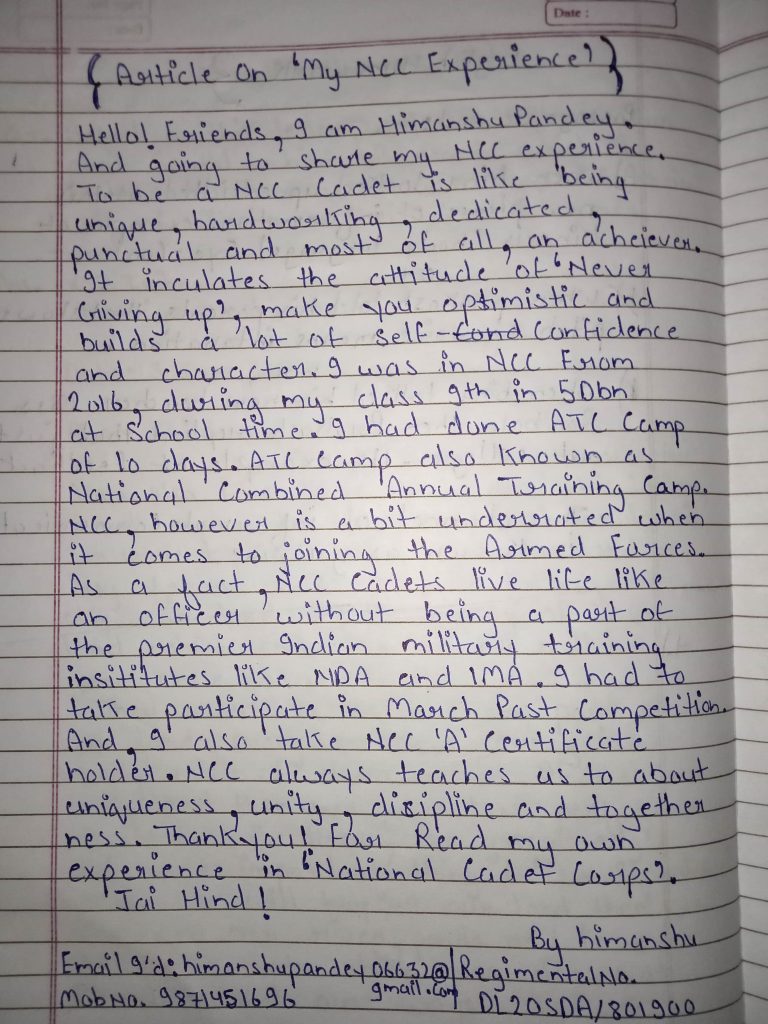 Date :
{ Article On 'My NCC Experience' }
Hello! Friends, I am Himanshu Pandey.
And going to share my NCC experience.
To be a NCC Cadet is like being
unique, hardworking, dedicated,
punctual and most of all, an acheiever.
It inculates the attitude of 'Never
Giving up', make you optimistic and
builds a lot of self-cond Confidence
and character. I was in NCC From
2016, during my class 9th in 5Dbn
at School time. I had done ATC Camp
of 10 days. ATC Camp also Known as
National Combined Annual Training Camp.
NCC, however is a bit underrated when
it comes to joining the Armed Farces.
As a fact, NCC Cadets live life like
an officer without being a part of
the premier Indian military training
insititutes like NDA and IMA. I had to
take participate in March Past Competition.
And, I also take NCC 'A' Certificate
holder. NCC always teaches us to about
uniqueness, unity, disipline and together
ness. Thankyou! Far Read my own
experience in 'National Cadet Corps'.
Jai Hind!
By himanshu
Email I'd: himanshupandey06632@gmail.com
Mob No. 9871451696
Regimental No.
DL20SDA/801900